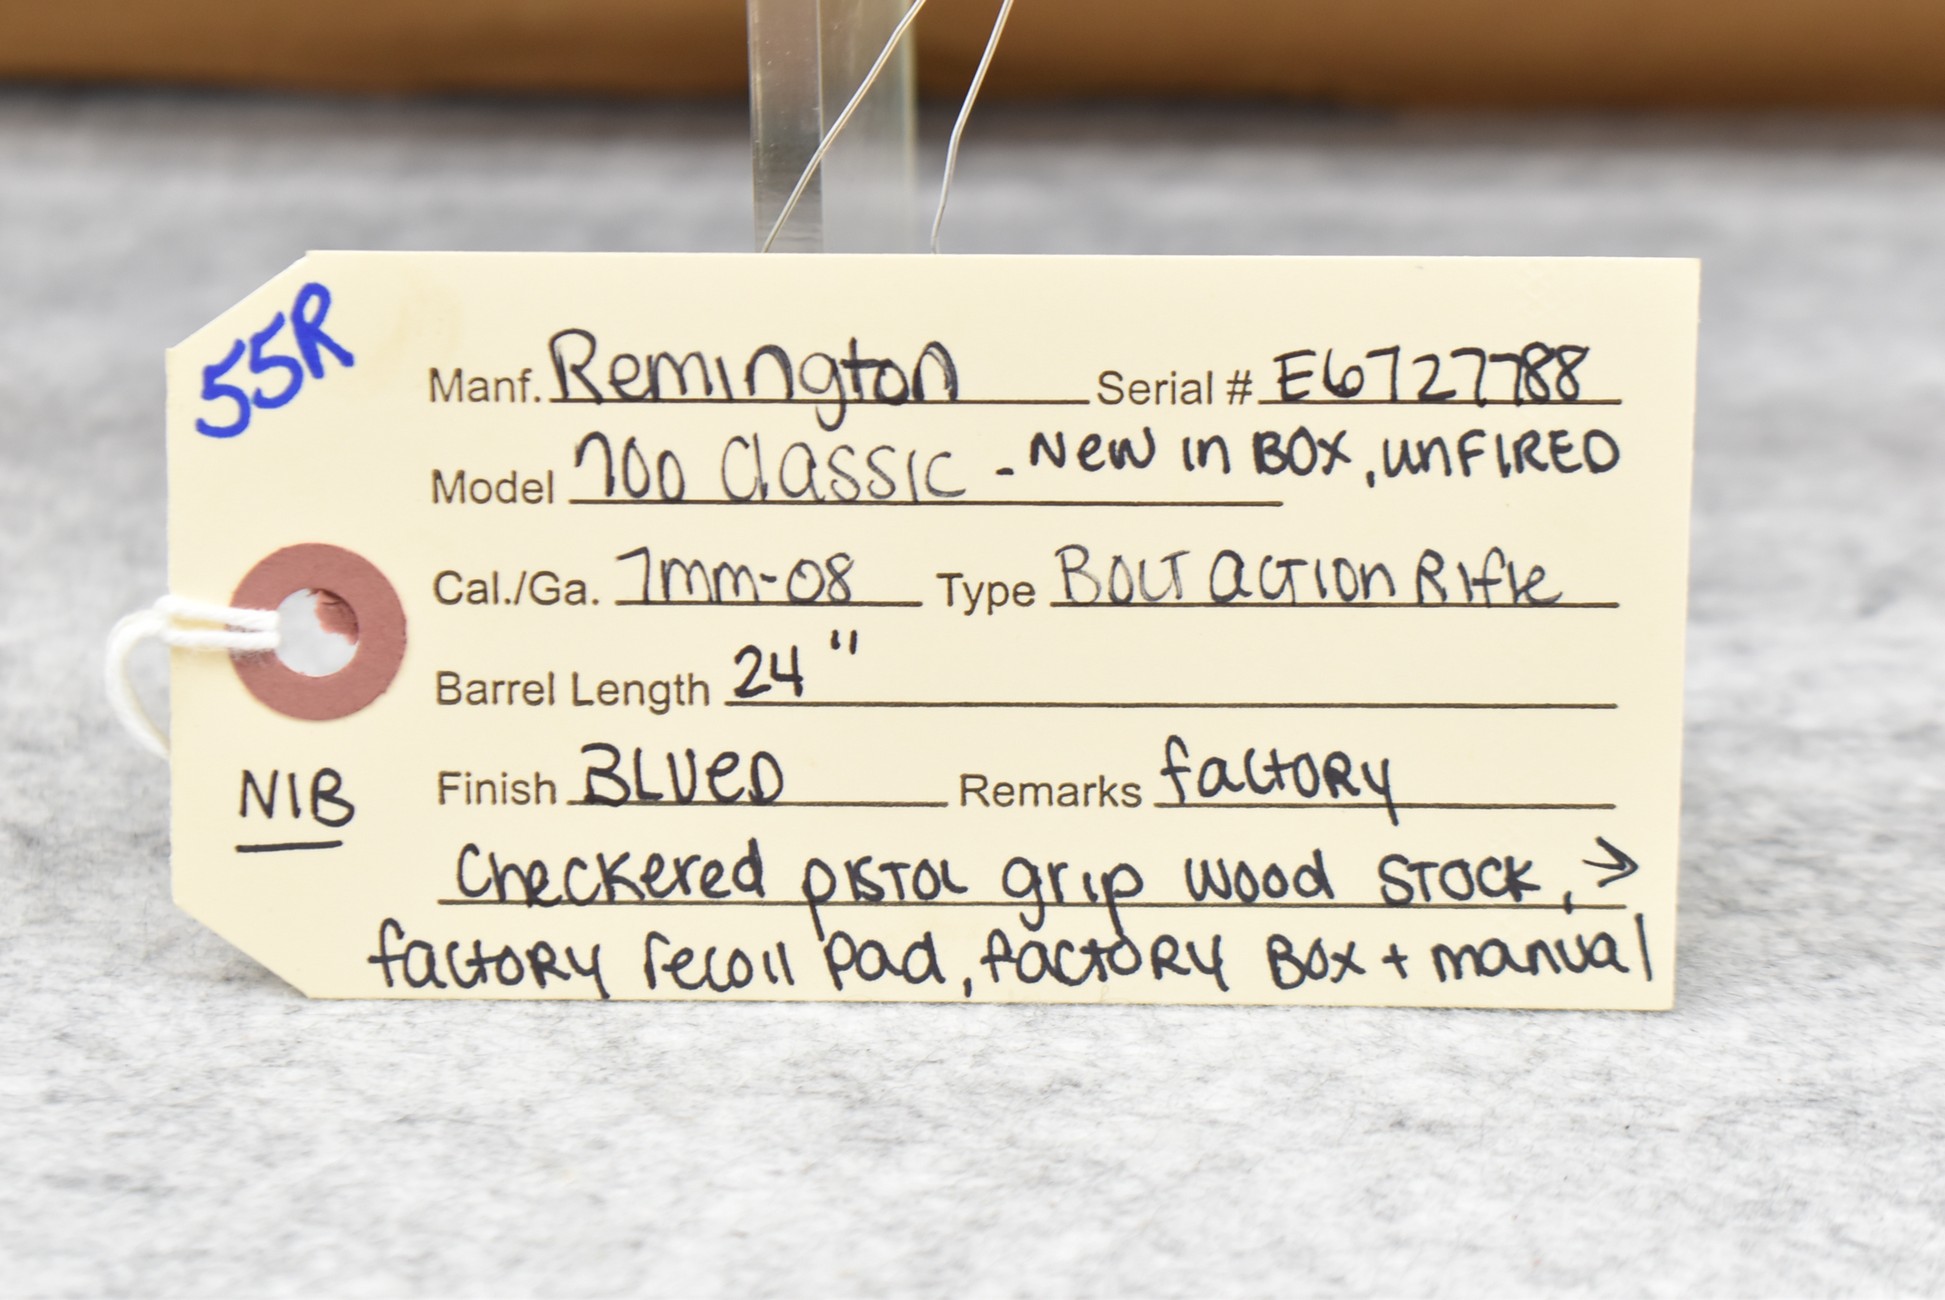 55R
Manf. Remington Serial # E6727788
Model 700 Classic - New in BOX, UNFIRED
Cal./Ga. 7mm-08 Type BOLT ACTION Rifle
Barrel Length 24"
NIB
Finish BLUED Remarks factory
Checkered pistol grip wood STOCK, →
factory recoil pad, factory Box + manual